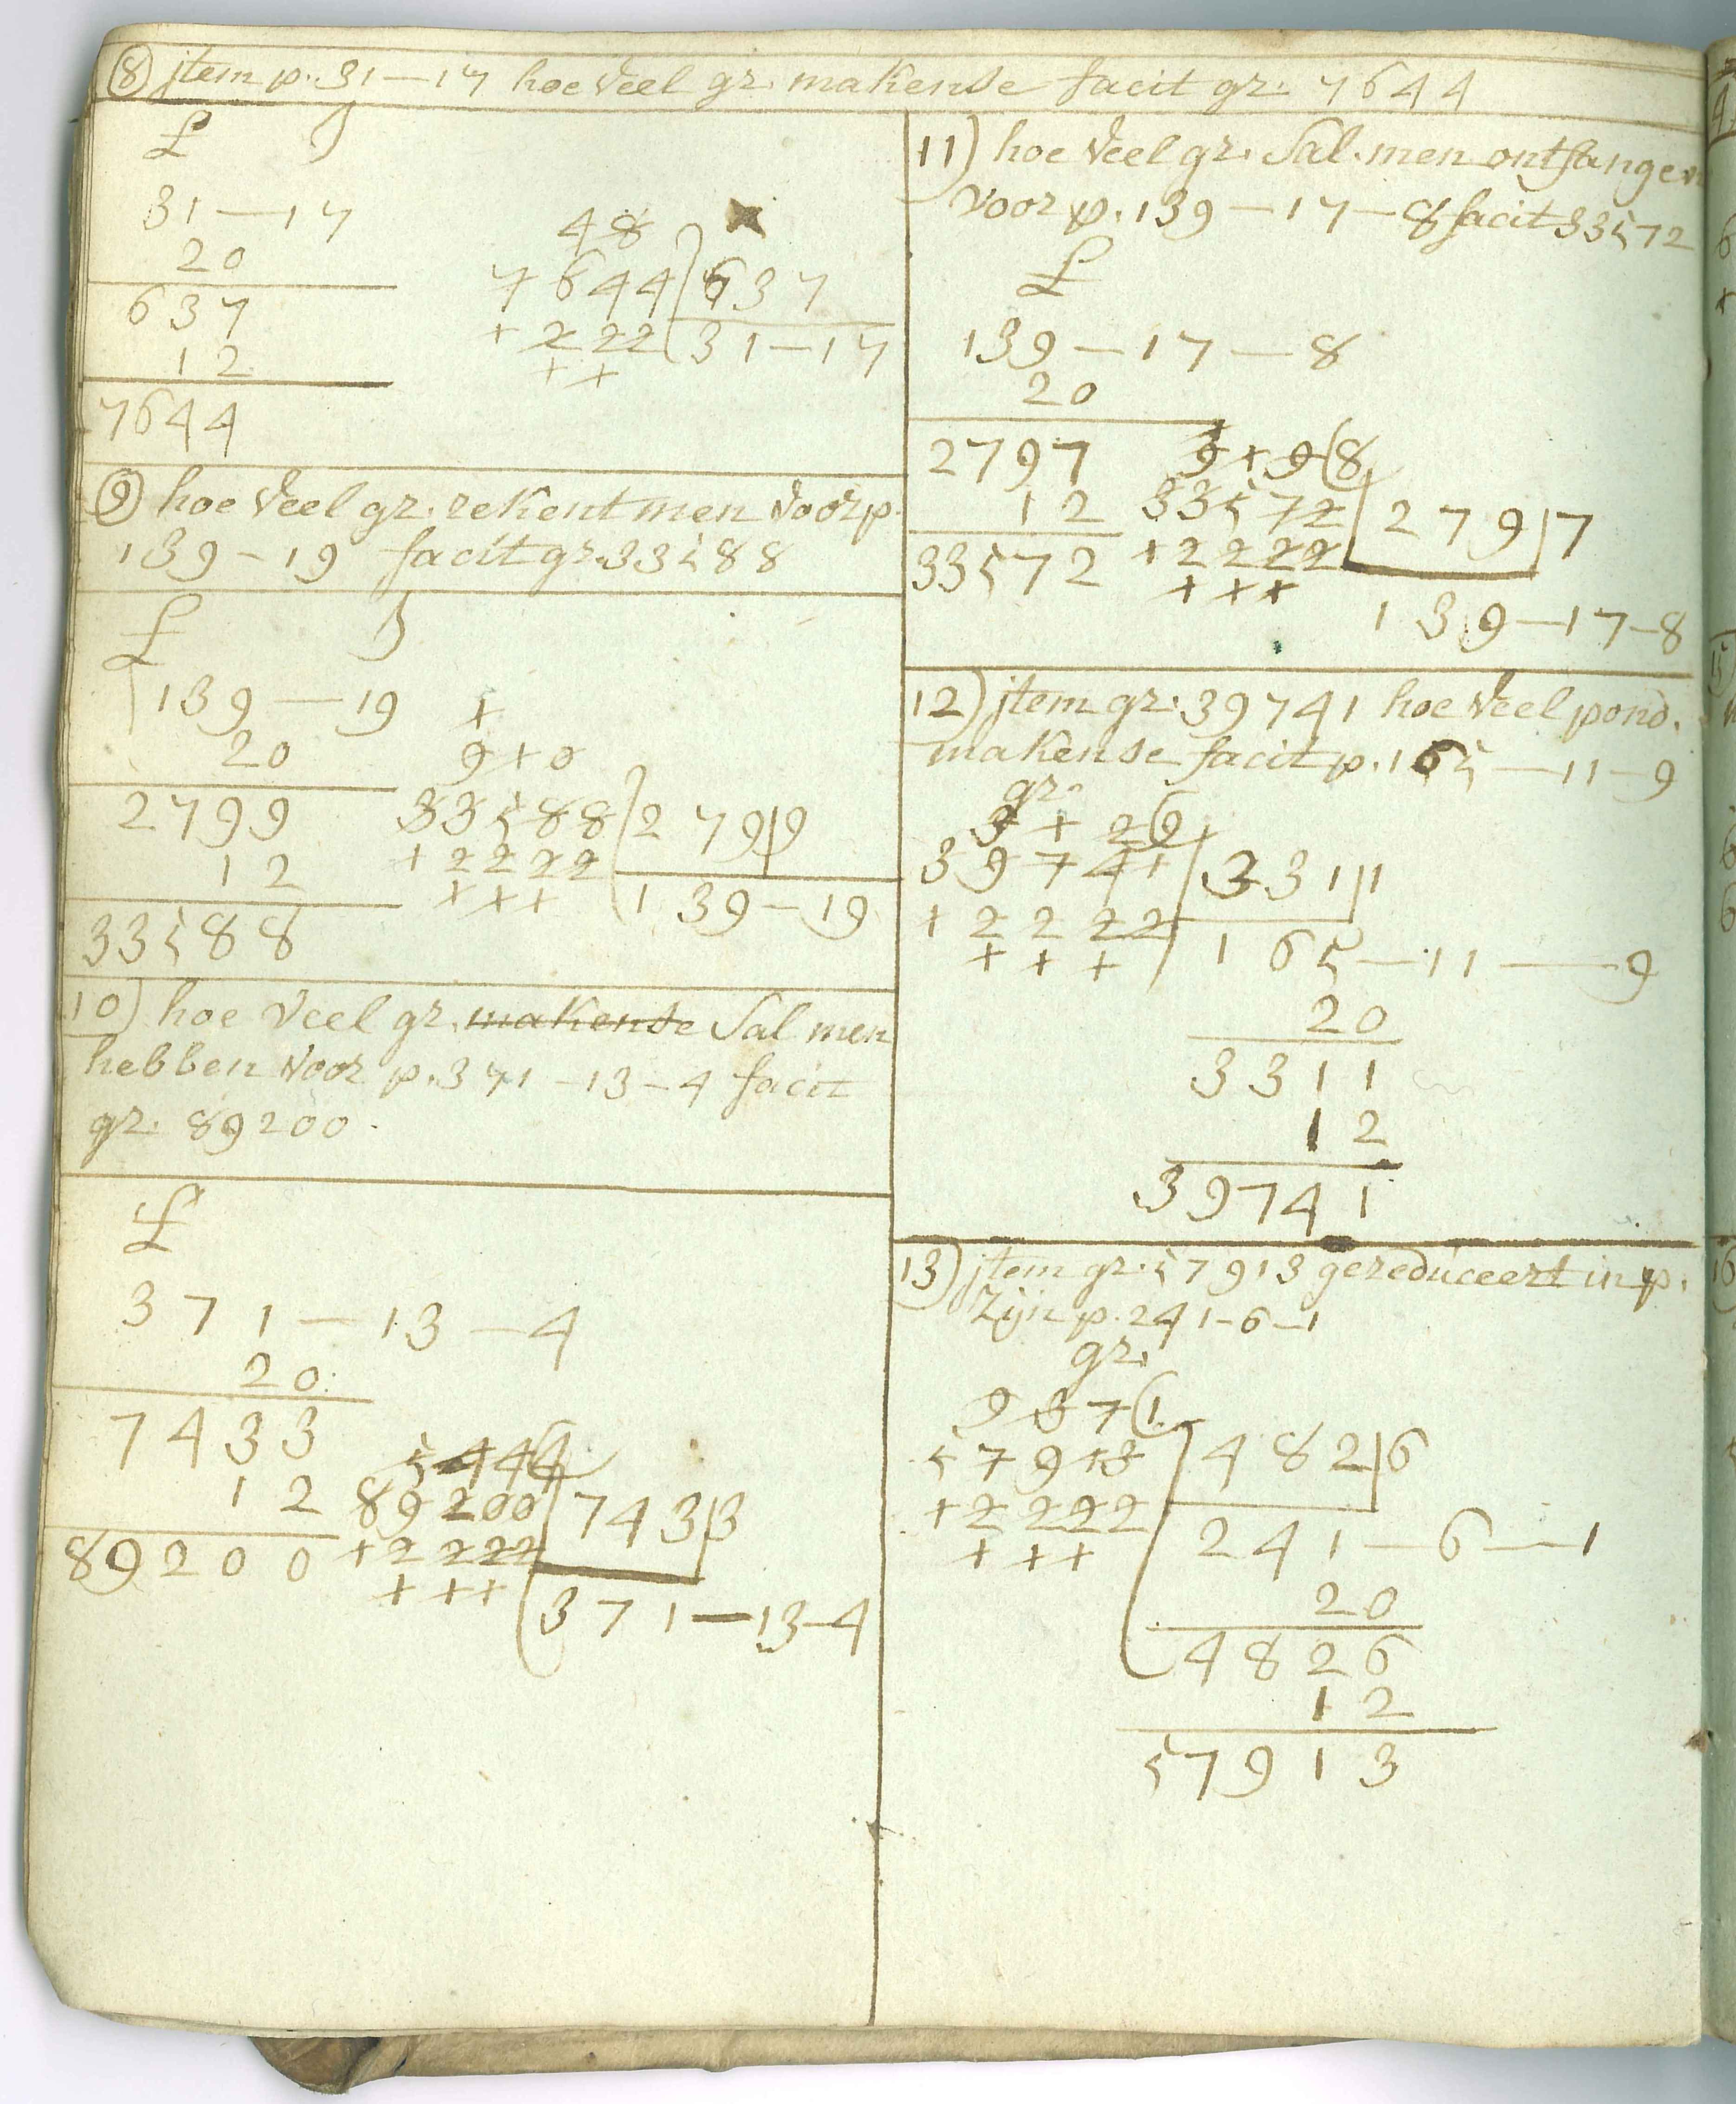 8) jtem p. 31 — 17 hoe veel gr. makense facit gr. 7644
£ ʃ
31 — 17
20
637
12
7644
48
7644 637
+ 222 31 — 17
+ +
9) hoe veel gr. rekent men voor p.
139 - 19 facit gr. 33588
£ ʃ
139 — 19
20
2799
12
33588
+
9 + 0
33588 279|9
+ 2222 139 — 19
+ + +
10) hoe veel gr. makense Sal men
hebben voor p. 371 - 13 - 4 facit
gr. 89200.
£
371 — 13 — 4
20
7433
12
89200
5444
89200 743|3
+ 2222
+ + + 371 — 13 - 4
11) hoe veel gr. Sal. men ontfangen
voor p. 139 — 17 — 8 facit 33572
£
139 — 17 — 8
20
2797
12
33572
9 + 9 (8
33572 279|7
+ 2222
+ + + 139 — 17 - 8
12) jtem gr. 39741 hoe veel pond.
makense facit p. 165 — 11 - 9
gr.
3 + 2 (9
39741 331|1
+ 2222 165 — 11 — 9
+ + +
20
3311
12
39741
13) jtem gr. 57913 gereduceert in p.
Zijn p. 241 - 6 - 1
gr.
9 3 7 (1
57913 482|6
+ 2222 241 — 6 — 1
+ + +
20
4826
12
57913